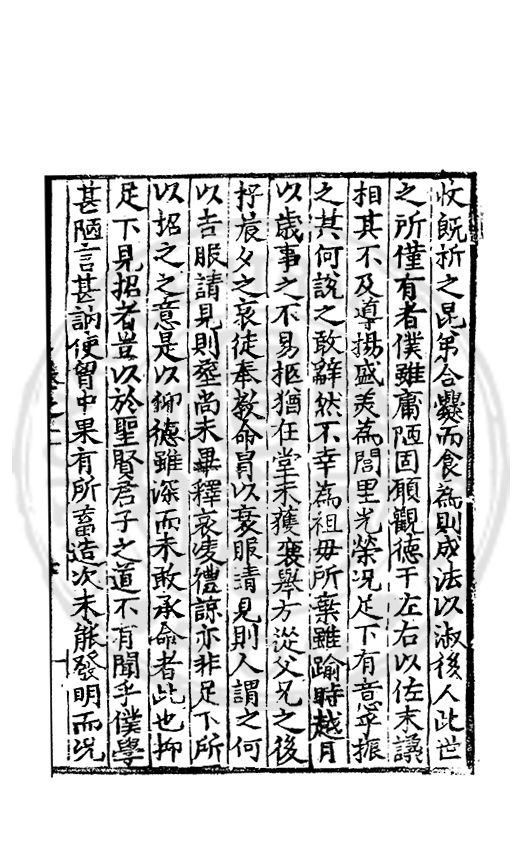 收既折之昆弟合爨而食為則成法以淑後人此世
之所僅有者僕雖庸陋固願觀德于左右以佐末議
相其不及導揚盛美為閭里光榮况足下有意乎振
之其何說之敢辭然不幸為祖母所棄雖踰時越月
以歲事之不易柩猶在堂未獲襄舉方從父兄之後
抒晨夕之哀徒奉教命冒以衰服請見則人謂之何
以吉服請見則堊尚未畢釋哀凌禮諒亦非足下所
以招之之意是以仰德雖深而未敢承命者此也抑
足下見招者豈以於聖賢君子之道不有聞乎僕學
甚陋言甚訥使胷中果有所蓄造次未能發明而况